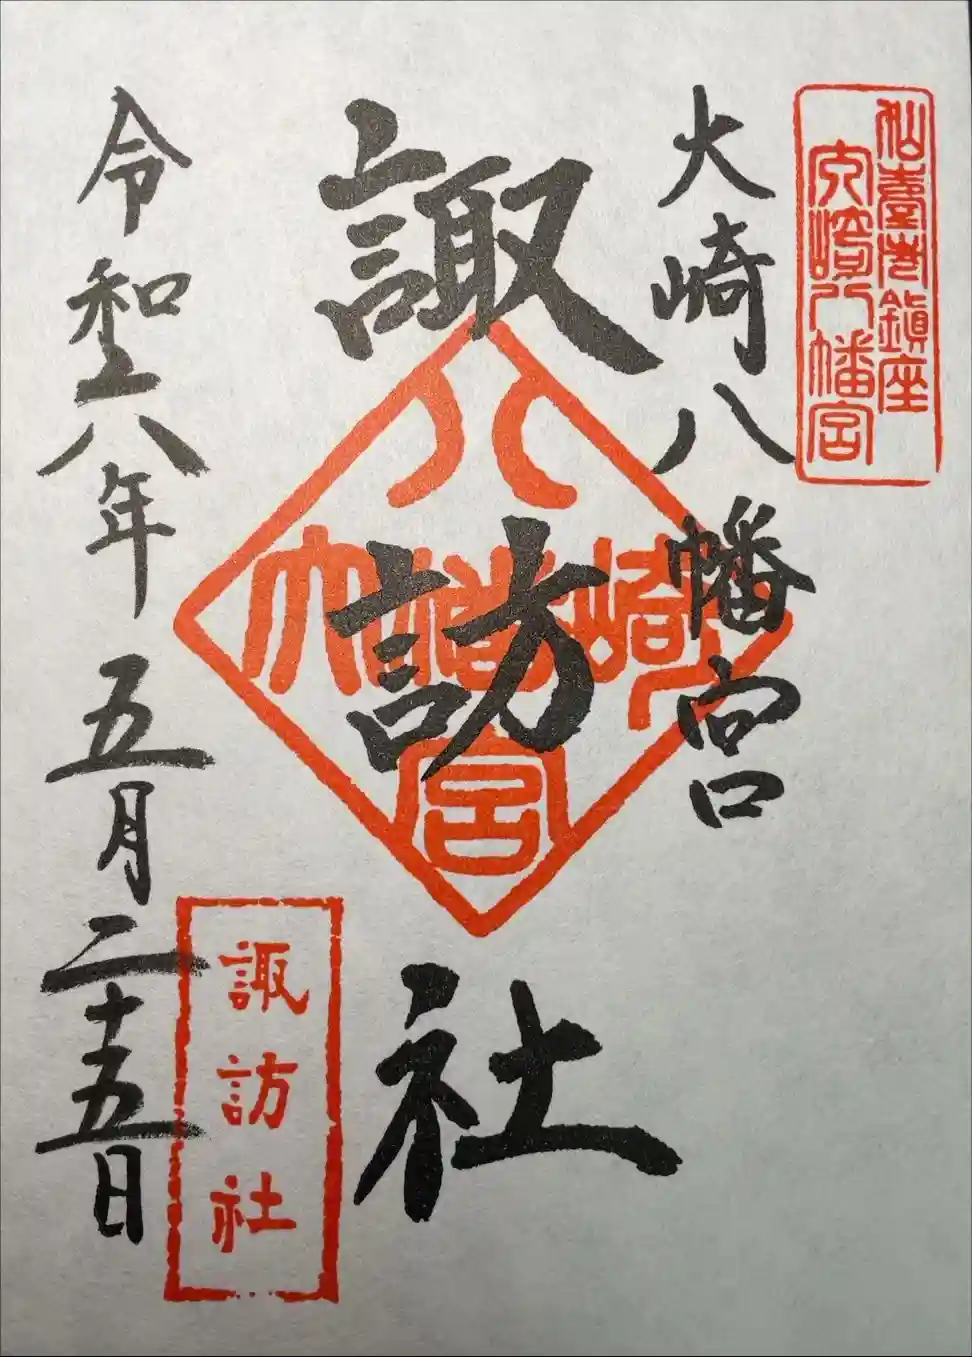 仙臺総鎮座
大崎八幡宮
大崎八幡宮
諏訪社
八
大幡崎
宮
諏訪社
令和六年五月二十五日